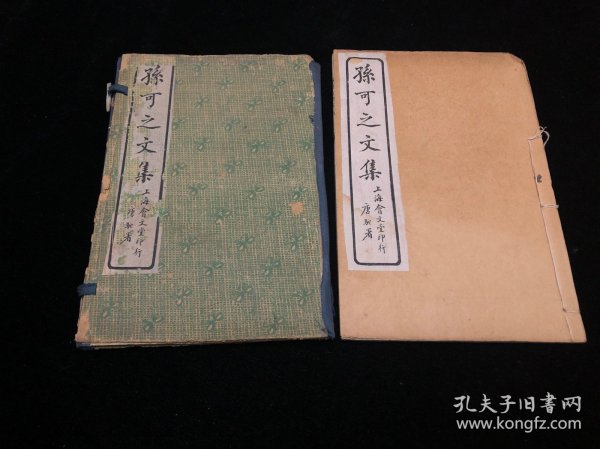 孫可之文集
上海會文堂印行
唐駝署
孫可之文集
上海會文堂印行
唐駝署
孔夫子旧書网
www.kongfz.com